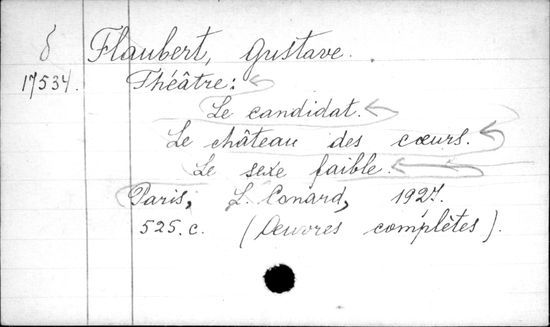 δ Flaubert, Gustave.
17534. Théâtre:
Le candidat.
Le château des cœurs.
Le sexe faible.
Paris, L. Conard, 1927.
525.c. (Oeuvres complètes).